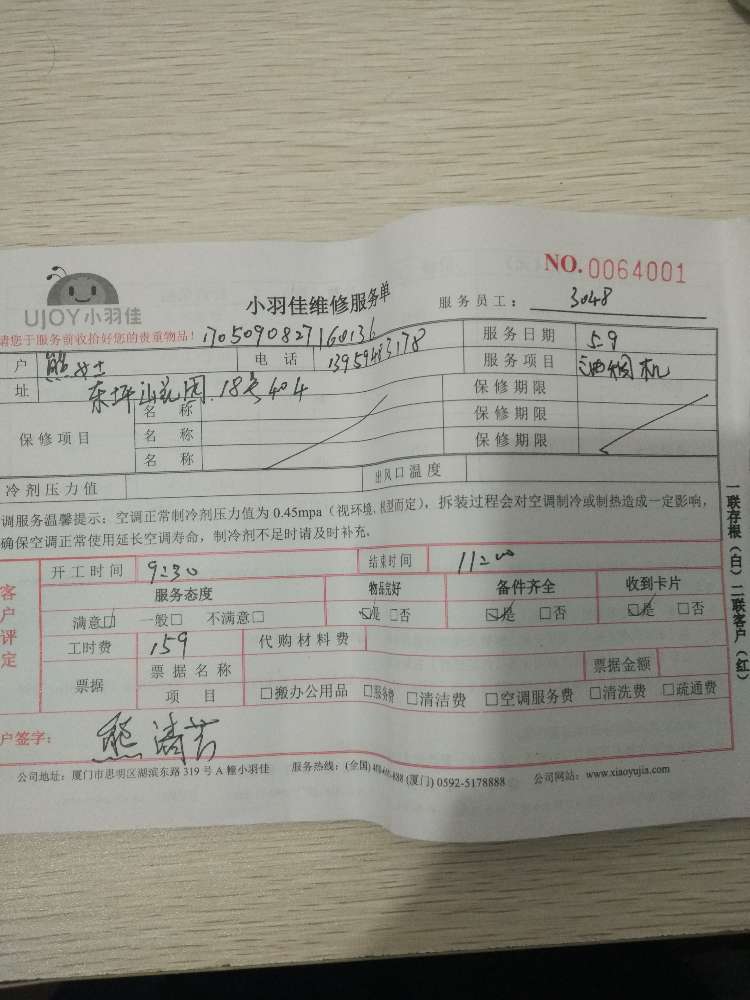 UJOY小羽佳
小羽佳维修服务单
NO.0064001
服务员工： 3048
请您于服务前收拾好您的贵重物品！ 170509082716 0136
户 熊女士 电话 服务日期 5.9
址 东坪山花园.18号404 服务项目 油烟机
保修项目 名称 保修期限
名称 保修期限
名称 保修期限
冷剂压力值 出风口温度
调服务温馨提示：空调正常制冷剂压力值为 0.45mpa（视环境、机型而定），拆装过程会对空调制冷或制热造成一定影响，
确保空调正常使用延长空调寿命，制冷剂不足时请及时补充.
客户评定
开工时间 9:30 结束时间 11:00
服务态度 物品完好 备件齐全 收到卡片
满意□ 一般□ 不满意□ □是 □否 □是 □否 □是 □否
工时费 159 代购材料费
票据 票据名称 票据金额
项目 □搬办公用品 □服务费 □清洁费 □空调服务费 □清洗费 □疏通费
户签字： 熊
公司地址：厦门市思明区湖滨东路 319 号 A 幢小羽佳 服务热线：(全国) (厦门) 0592-5178888 公司网站：www.xiaoyujia.com
一联存根（白）二联客户（红）